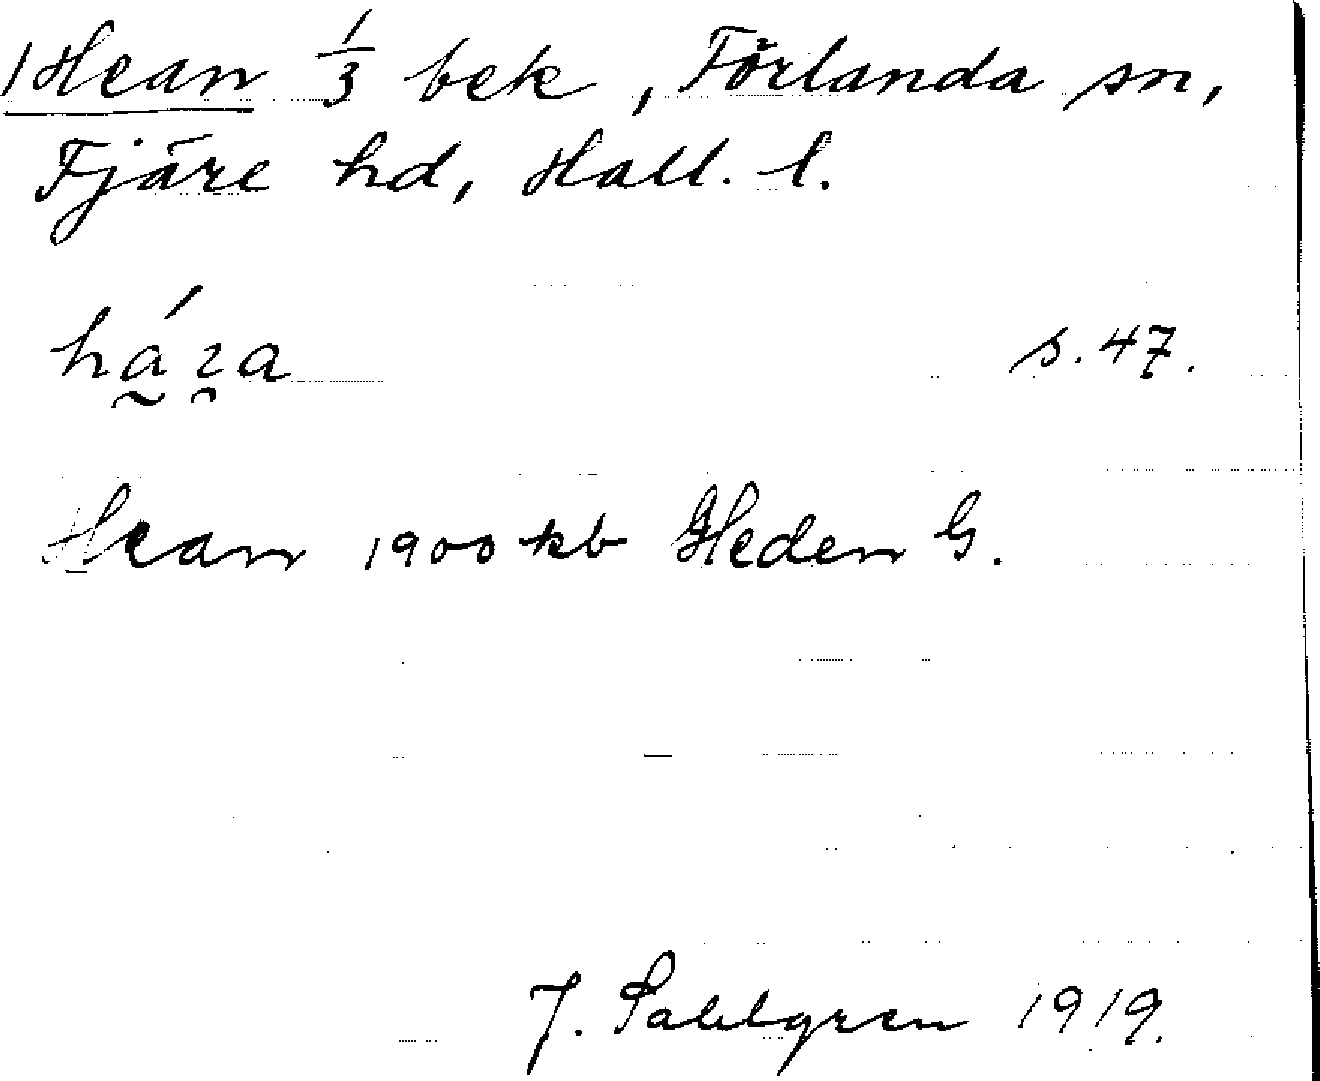 Hean 1/3 bek, Förlanda sn,
Fjäre hd, Hall. l.
s. 47.
Hean 1900 kb Heden G.
J. Sahlgren 1919.